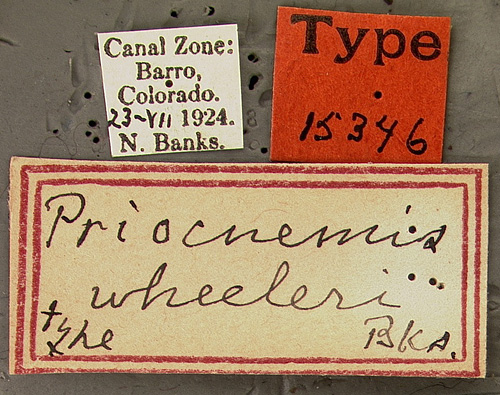 Canal Zone:
Barro,
Colorado.
23-VII 1924.
N. Banks.
Type
15346
Priocnemis
wheeleri
Bks.